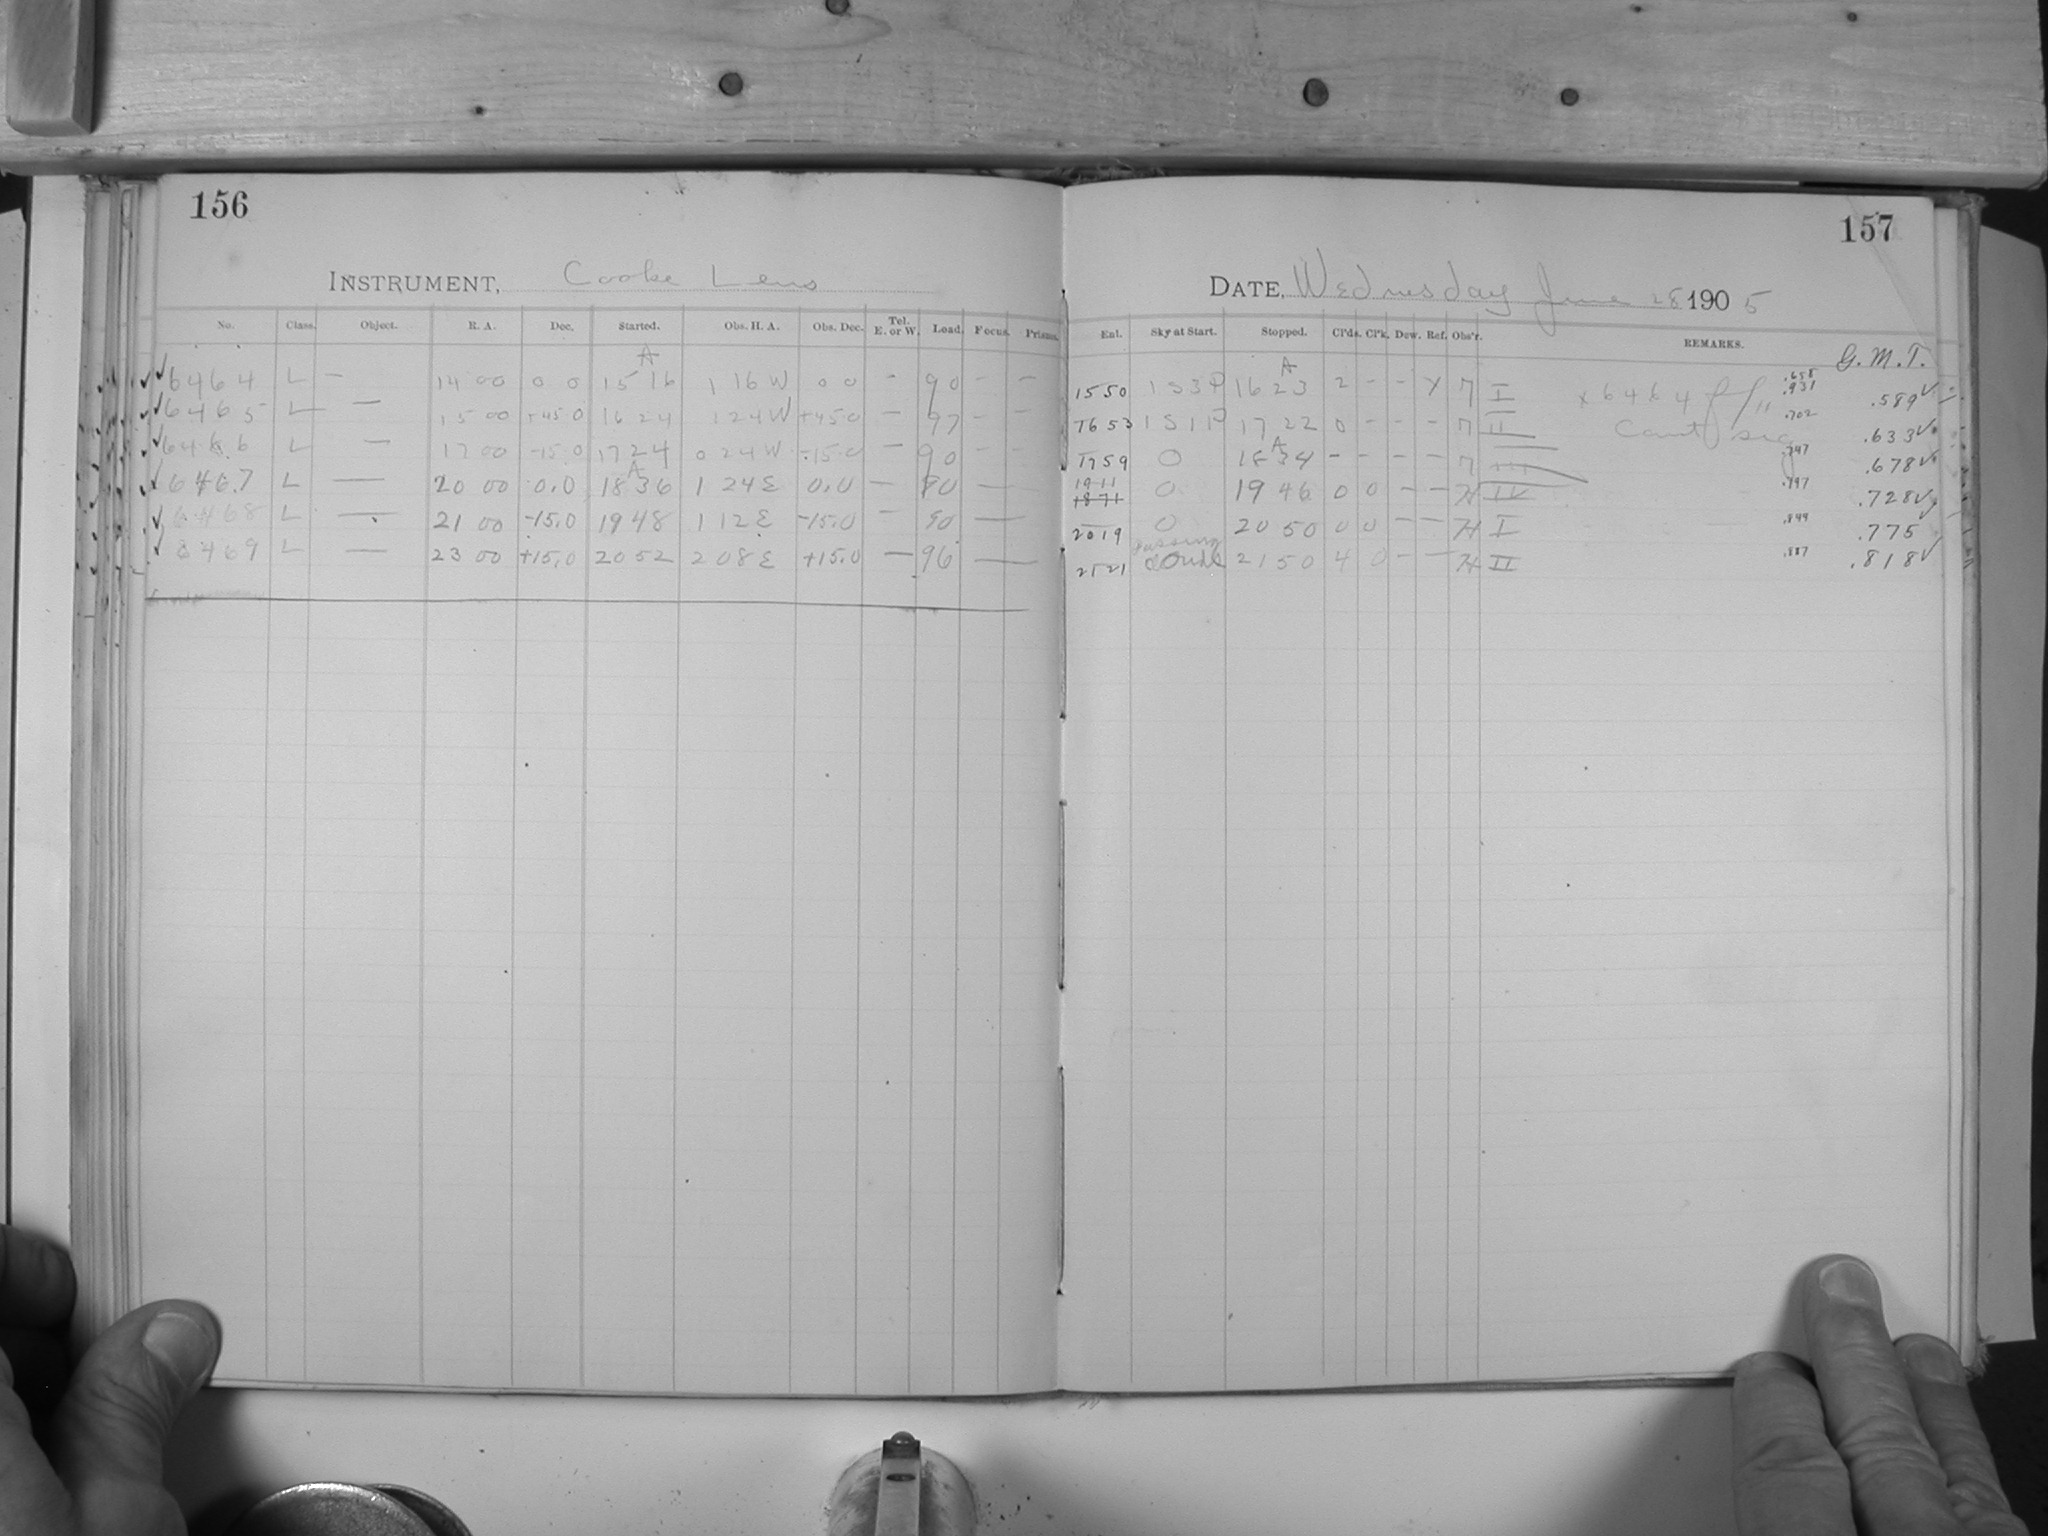 156
157
INSTRUMENT, Cooke Lens
DATE, Wednesday June 28 1905
No. Class. Object. R. A. Dec. Started. Obs. H. A. Obs. Dec. Tel. E. or W. Load. Focus. Prisms. Ext. Sky at Start. Stopped. Cl'ds. Cl'k. Dew. Ref. Obs'r. REMARKS. G. M. T.
A A
✓ 6464 L — 14 00 0 0 15 16 1 16 W 0 0 - 90 - - 1550 1S3P 16 23 2 - - Y I × 6464 .658 .931 .589 ✓
✓ 6465 L — 15 00 +45 0 16 24 1 24 W +45.0 — 97 - - 1653 1S1P 17 22 0 - - - II Cant .702 .633 ✓
✓ 6466 L — 17 00 -15 0 17 24 0 24 W -15.0 — 90 - - 1759 0 18 34 - - - - III .747 .678 ✓
A A
✓ 6467 L — 20 00 0.0 18 36 1 24 E 0.0 — 80 — 1911 1871 0 19 46 0 0 - - H IV .797 .728 ✓
✓ 6468 L — 21 00 -15.0 19 48 1 12 E -15.0 - 90 — 2019 0 20 50 0 0 - - H I .844 .775 ✓
✓ 6469 L — 23 00 +15.0 20 52 2 08 E +15.0 — 96 — 2121 passing clouds 21 50 4 0 - - H II .887 .818 ✓